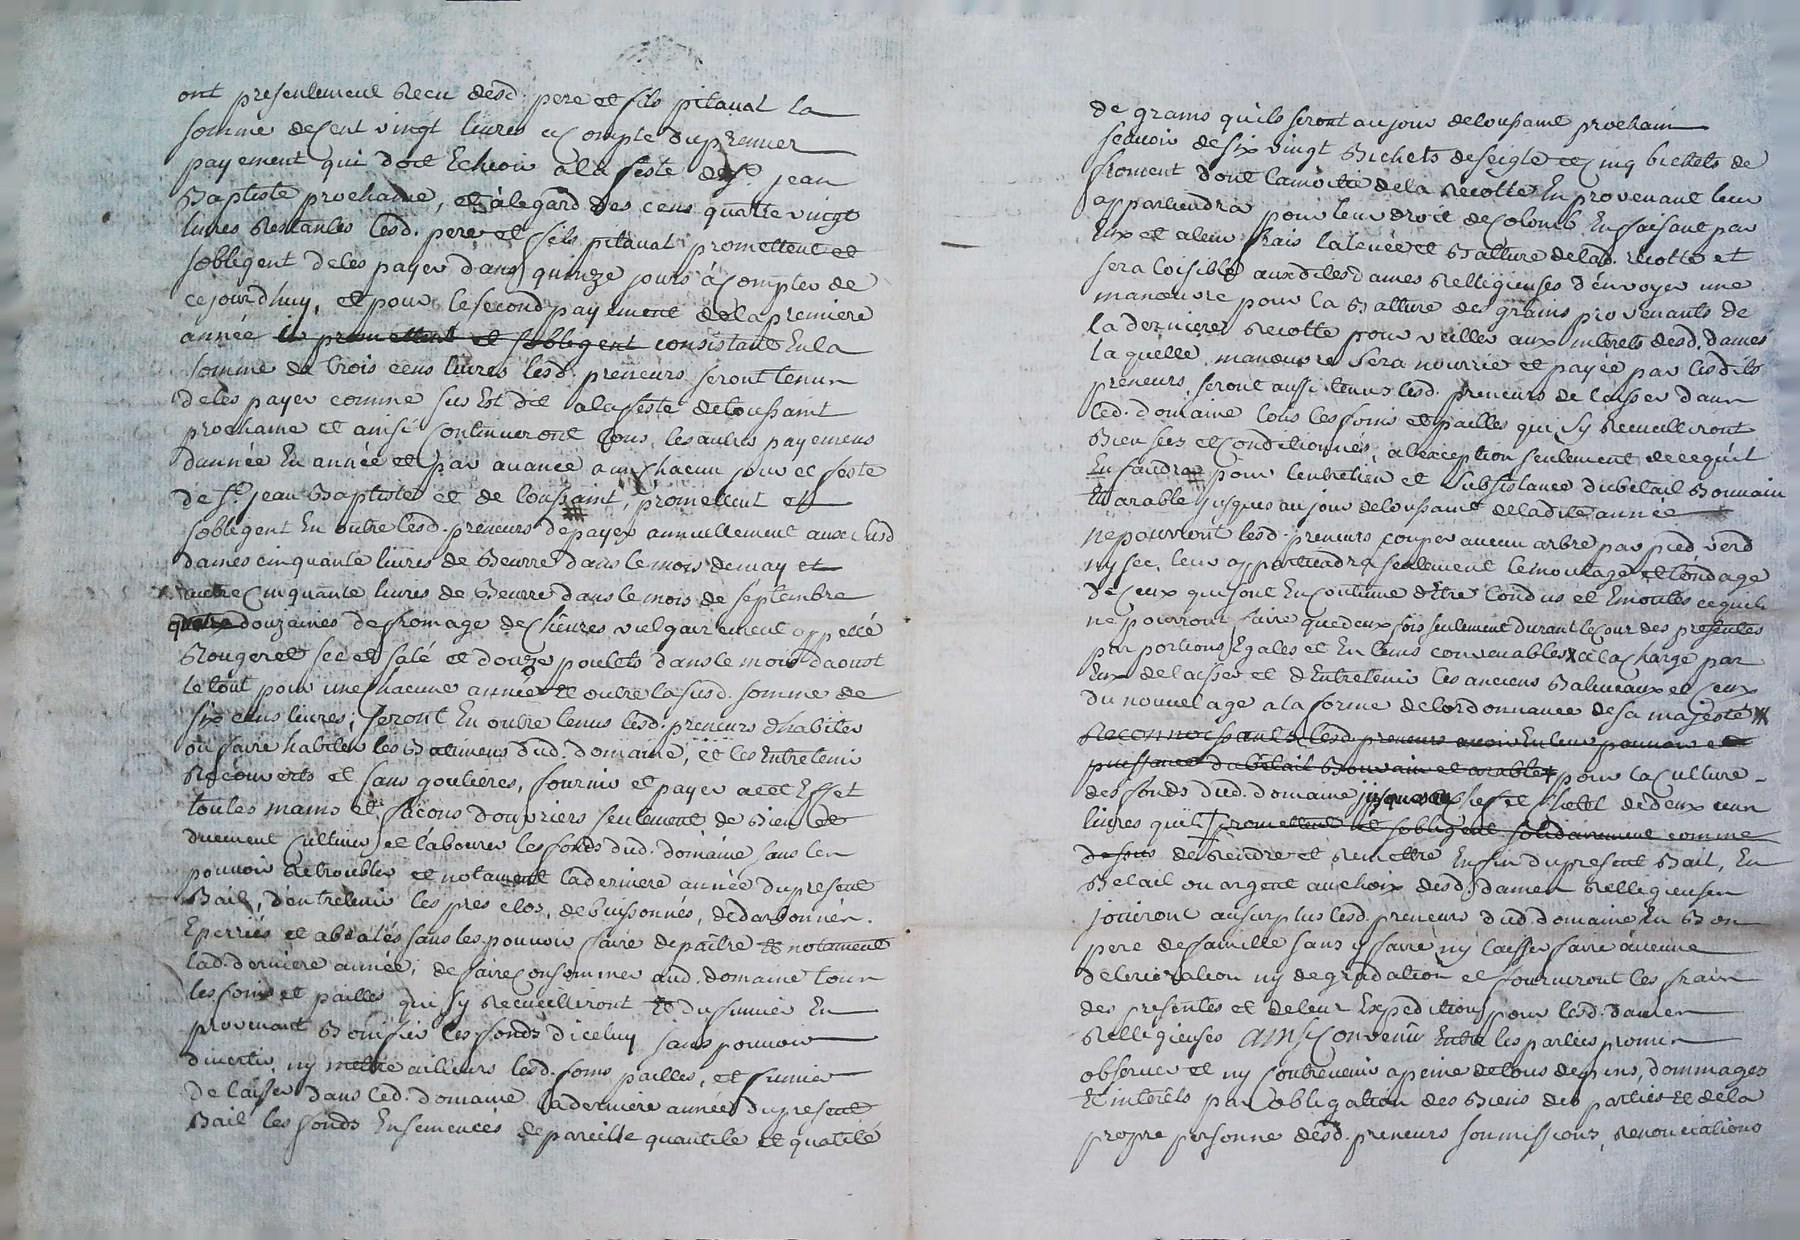 ont presentement Receu desd. pere et fils pitaval la
somme de Cent vingt livres a Compte du premier
payement qui doit Echeoir a la feste de St. jean
Baptiste prochaine, et à legard des cens quatre vingt
livres Restantes lesd. pere et fils pitaval promettent et
soblegent de les payer dans quinze jours à Compter de
cejourdhuy, et pour le second payement de la premiere
année ils promettent et soblegent consistant En la
somme de trois cens livres lesd. preneurs seront tenus
de les payer comme sus Est dit a la feste de toussaint
prochaine et ainsi Continueront tous les autres payemens
dannée En année et par avance a un chacun jour et feste
de St. jean Baptiste et de toussaint, promettent et
soblegent En outre lesd. preneurs de payer annuellement aux susd
dames cinquante livres de Beurre dans le mois de may et
autre Cinquante livres de Beurre dans le mois de septembre
quatre douzaines de fromage de Chevres vulgairement appellé
Rougeret sec et salé et douze poulets dans le mois daoust
le tout pour une chacune année Et outre la susd. somme de
six cens livres; seront En outre tenus lesd. preneurs dhabiter
ou faire habiter les Batimens dud. domaine, et les Entretenir
Recouverts et sans goutieres, fournir et payer a cet Effet
toutes mains et façons douvriers seulement de Bien et
duement Cultiver et labourer les fonds dud. domaine sans les
pouvoir Retroubler et notament la derniere année du present
Bail, dentretenir les pres clos, debuissonnés, dedarbonnés.
Eperriés et abealés sans les pouvoir faire depaître Et notament
lad. derniere année; de faire Consommer aud. domaine tous
les foins et pailles qui sy Recueilliront Et du fumier En
provenant Bonifier les fonds diceluy sans pouvoir
divertir ny mettre ailleurs lesd. foins pailles, et fumier
de laisser dans led. domaine la derniere année du present
Bail les fonds Ensemencés de pareille quantité et qualité
de grains quils seront au jour de toussaint prochain
scavoir de six vingt Bichets de seigle et Cinq bichets de
froment dont la moitié de la Recolte En provenant leur
appartiendra pour leur droit de Colonb En faisant par
Eux et a leur frais la levée et Batture de lad. recolte et
sera loisible auxdites dames Relligieuses d'énvoyer une
manoeuvre pour la Batture des grains provenants de
la derniere Recolte pour veiller aux interets desd. dames
laquelle manoeuvre sera nourrie et payée par lesdits
preneurs, seront aussi tenus lesd. preneurs de laisser dans
led. domaine tous les foins et pailles qui sy Recueilliront
Bien secs et Conditionnés, a léxception seulement de ce quil
En faudra pour lentretien et subsistance du betail Bouvain
Et arable jusques au jour de toussaint de ladite année
ne pourront lesd. preneurs couper aucun arbre par pied verd
ny sec, leur appartiendra seulement lemoutage et tondage
de Ceux qui sont En Coutume dEtre tondus et Emoutés ce quils
ne pourront faire que deux fois seulement durant le Cour des presentes
par portions Egales et En tems convenables a la Charge par
Eux de laisser et dEntretenir les anciens Baliveaux et Ceux
du nouvel age a la forme de lordonnance de sa majesté
Reconnoissants lesd. preneurs avoir En leur pouvoir et
puissance du betail Bouvain et arable pour la Culture
des fonds dud. domaine jusques a chef et Chetel de deux cens
livres quils promettent et soblegent solidairement comme
dessus de Rendre et Remettre En fin du present Bail, En
Betail ou argent au choix desd. dames Relligieuses
joüiront au surplus lesd. preneurs dud. domaine En Bon
pere de famille sans y faire ny laisser faire aucune
deterioration ny degradation et fourniront les frais
des presentes et de leur Expedition pour lesd. dames
Relligieuses ainsy Convenu Entre les parties promis
observer et ny Contrevenir a peine de tous depens, dommages
Et interêts par obligation des Biens des parties Et de la
propre personne desd. preneurs soumissions, Renonciations